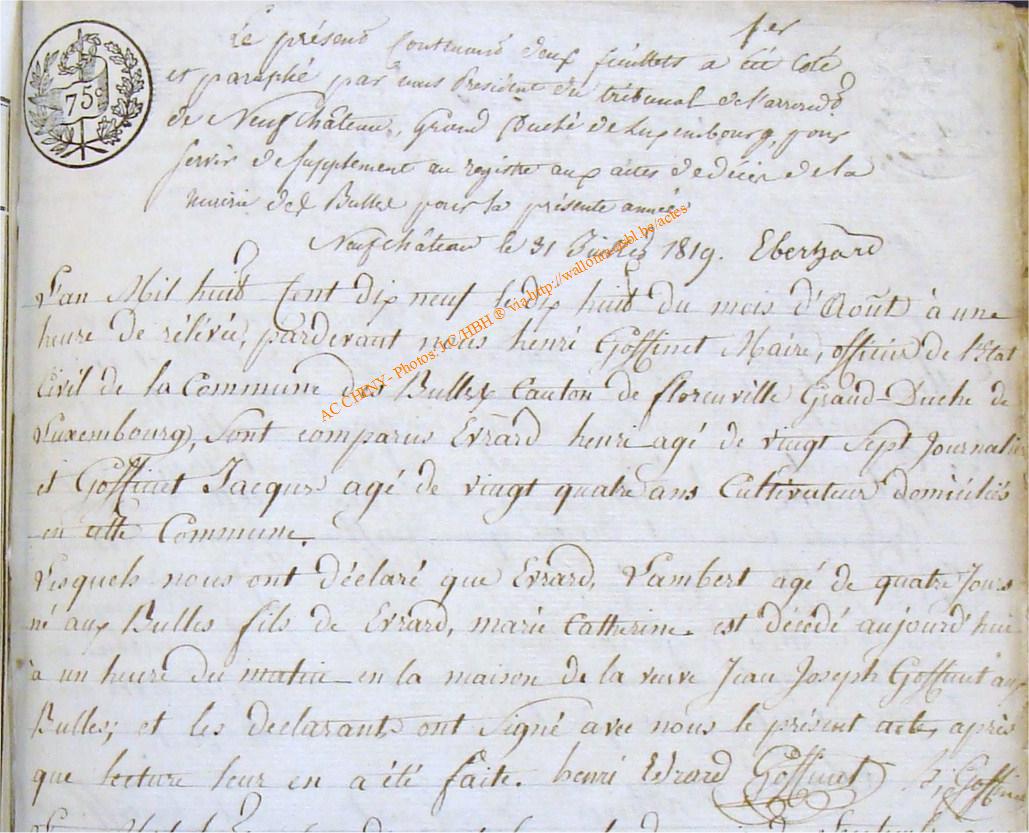 1er
75c
Le présent Contenant deux feuillets a été Coté
et paraphé par nous Président du tribunal de l'arrond.
de Neufchâteau, Grand Duché de Luxembourg, pour
servir de supplement au registre aux actes de décès de la
mairie des Bulles pour la présente année.
Neufchâteau le 31 Juillet 1819. Eberhard
L'an Mil huit Cent dix neuf le dix huit du mois d'Août à une
heure de rélévée, pardevant nous henri Goffinet Maire, officier de l'Etat
Civil de la Commune des Bulles Canton de florenville Grand-Duché de
Luxembourg, Sont comparus Evrard henri agé de vingt Sept Journalier
et Goffinet Jacques agé de vingt quatre ans Cultivateur domiciliés
en cette Commune.
Lesquels nous ont déclaré que Evrard, Lambert agé de quatre Jours
né aux Bulles fils de Evrard, marie Catherine. est décédé aujourd'hui
à un heure du matin en la maison de la veuve Jean Joseph Goffinet aux
Bulles; et les declarants ont Signé avec nous le présent acte, après
que lecture leur en a été faite. henri Evrard Goffinet h, Goffinet
AC CHINY - Photos: J.C/HBH ® via http://wallonia-asbl.be/actes